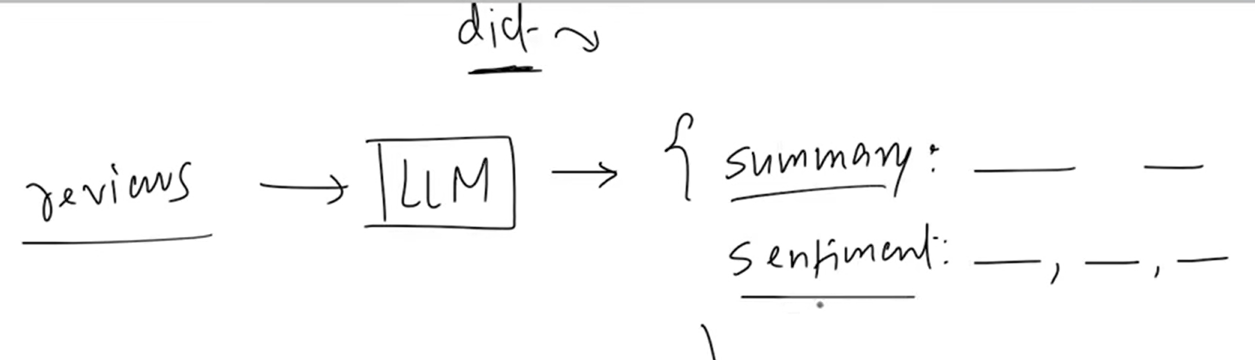 dict
reviews → LLM → { summary: — —
sentiment: —, —, —